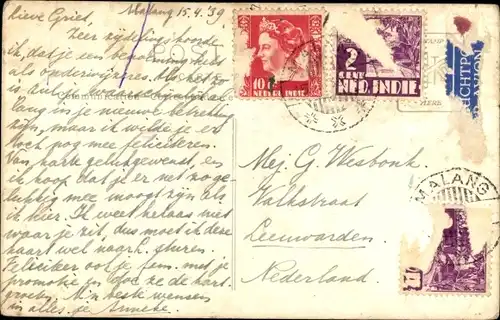 Malang 15.4.'39
Lieve Griet,
Zeer zijdelings hoorde
ik, dat je een benoeming hebt
als onderwijzeres. Als het zo
is zul je wel
lang in je nieuwe betrekking
zijn, maar ik wilde je er
toch nog mee feliciteren.
Van harte gelukgewenst, en
ik hoop dat je er net zo ge-
lukkig mee moogt zijn als
ik hier. Ik weet helaas niet
waar je zit, dus moet ik deze
kaart wel naar h. sturen.
Feliciteer ook je fam. met je
promotie en doe ze de hart.
groeten. M'n beste wensen
in alles, je Anneke.
POST
Communication
10 CT
NEDERL. INDIE
2
CENT
NED. INDIE
LUCHTPOST
PAR AVION
MALANG
Mej. G. Westbonk
Valkstraat
Leeuwarden.
Nederland